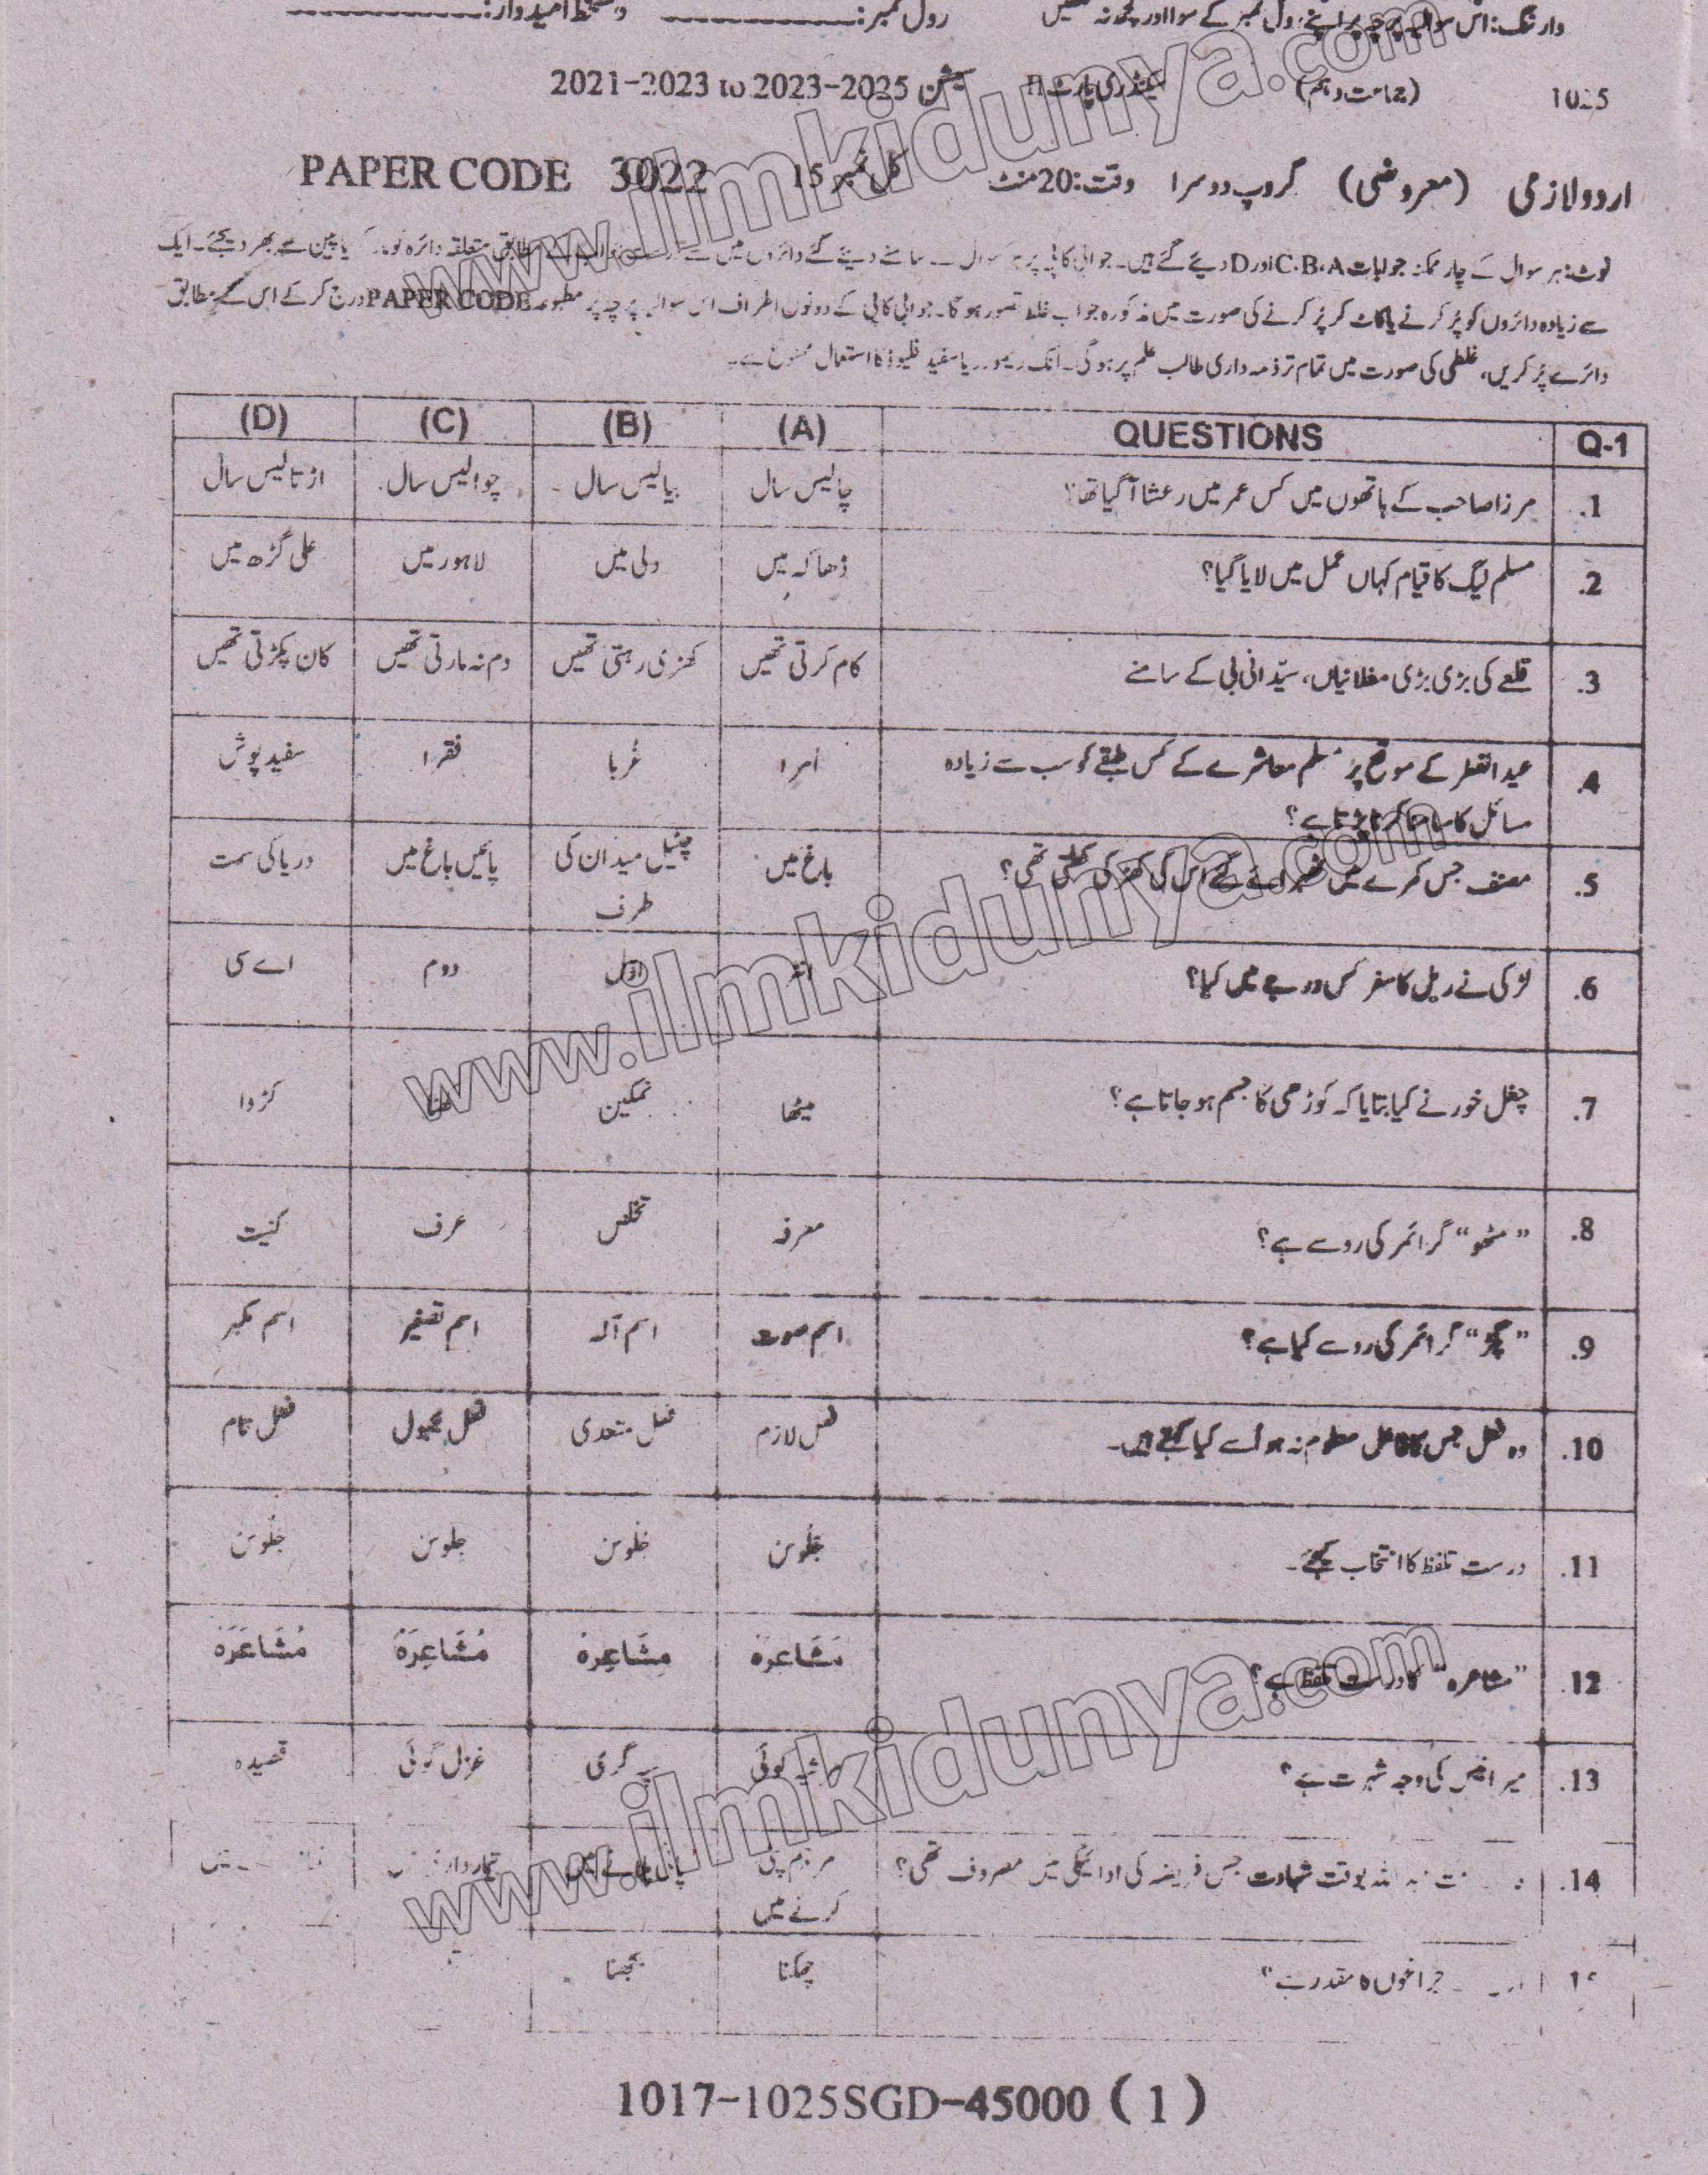 وارننگ: اس سوالیہ پرچہ پر اپنے رول نمبر کے سوا اور کچھ نہ لکھیں رول نمبر: ____________ دستخط امیدوار: ____________
1025 (جماعت دہم) سیکنڈری پارٹ II سیشن 2021-2023 to 2023-2025
اردو لازمی (معروضی) گروپ دوسرا وقت: 20 منٹ کل نمبر 15 PAPER CODE 3022
نوٹ: ہر سوال کے چار ممکنہ جوابات C،B،A اور D دیئے گئے ہیں۔ جوابی کاپی پر ہر سوال کے سامنے دیئے گئے دائروں میں سے متعلقہ دائرہ کو یا پین سے بھر دیجئے۔ ایک
سے زیادہ دائروں کو پُر کرنے یا کاٹ کر پُر کرنے کی صورت میں مذکورہ جواب غلط تصور ہو گا۔ جوابی کاپی کے دونوں اطراف اس سوالیہ پرچہ پر مطبوعہ PAPER CODE درج کر کے اس کے مطابق
دائرے پُر کریں، غلطی کی صورت میں تمام تر ذمہ داری طالب علم پر ہو گی۔ انک ریموور یا سفید فلیوڈ کا استعمال ممنوع ہے۔
Q-1 QUESTIONS (A) (B) (C) (D)
1. مرزا صاحب کے ہاتھوں میں کس عمر میں رعشا آ گیا تھا؟ چالیس سال بیالیس سال چوالیس سال اڑتالیس سال
2. مسلم لیگ کا قیام کہاں عمل میں لایا گیا؟ ڈھاکہ میں دلی میں لاہور میں علی گڑھ میں
3. قلعے کی بڑی بڑی مغلانیاں، سیّدانی بی کے سامنے کام کرتی تھیں کھڑی رہتی تھیں دم نہ مارتی تھیں کان پکڑتی تھیں
4. عید الفطر کے موقع پر مسلم معاشرے کے کس طبقے کو سب سے زیادہ اُمرا غُربا فقرا سفید پوش
مسائل کا سامنا کرنا پڑتا ہے؟
5. مصنف جس کمرے میں ٹھہرائے گئے اس کی کھڑکی کھلتی تھی؟ باغ میں چٹیل میدان کی پائیں باغ میں دریا کی سمت
طرف
6. لڑکی نے ریل کا سفر کس درجے میں کیا؟ انٹر اوّل دوم اے سی
7. چغل خور نے کیا بتایا کہ کوڑھی کا جسم ہو جاتا ہے؟ میٹھا نمکین کڑوا
8. ”مٹھو“ گرائمر کی رو سے ہے؟ معرفہ تخلص عرف کنیت
9. ”پگڑ“ گرائمر کی رو سے کیا ہے؟ اسم صوت اسم آلہ اسم تصغیر اسم مکبر
10. وہ فعل جس کا فاعل معلوم نہ ہو اُسے کیا کہتے ہیں۔ فعل لازم فعل متعدی فعل مجہول فعل تام
11. درست تلفظ کا انتخاب کیجئے۔ جَلُوسَن جُلُوسَن جِلوسَن جُلُوسَن
12. ”مشاعرہ“ کا درست تلفظ ہے؟ مَشَاعرَہ مِشَاعِرہ مُشَاعِرَہ مُشَاعَرَہ
13. میر انیس کی وجہ شہرت ہے؟ مرثیہ گوئی سپہ گری غزل گوئی قصیدہ
14. بوقت شہادت جس فریضہ کی ادائیگی میں مصروف تھی؟ مرہم پٹی پانی پلانے میں تیمارداری میں
کرنے میں
چراغوں کا مقدر ہے؟ چمکنا بجھنا
1017-1025SGD-45000 ( 1 )
www.ilmkidunya.com
www.ilmkidunya.com
www.ilmkidunya.com